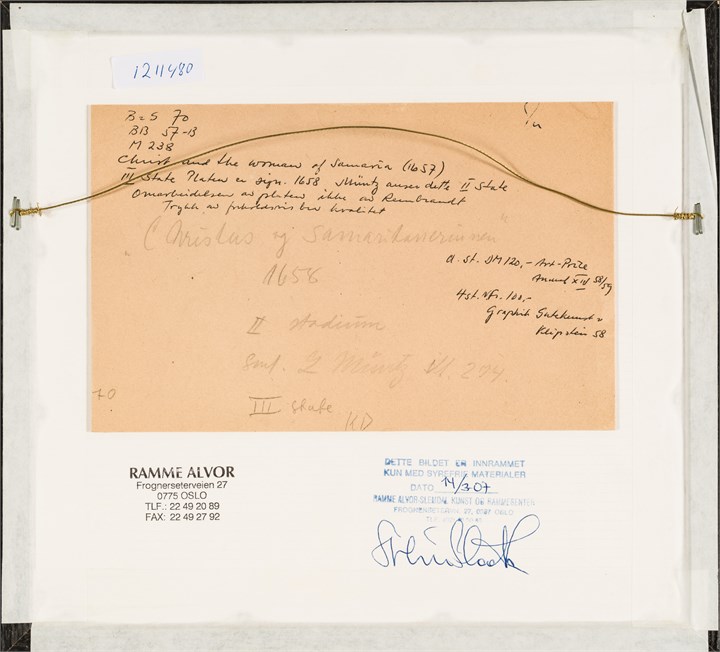 1211480
B=S 70
BB 57-B
M 238
Christ and the woman of Samaria (1657)
III State Platen er sign. 1658 Müntz anser dette II State
Omarbeidelsen av platen ikke av Rembrandt
Trykk av forholdsvis bra kvalitet
"Christus og Samaritanerinnen"
1658
II stadium
Müntz ill. 274.
III State
KD
70
a. st. DM 120,- Art-Price
Annual XIV 58/59
4 st. sfr. 100,-
Graphik Gutekunst
Klipstein 58
RAMME ALVOR
Frognerseterveien 27
0775 OSLO
TLF.: 22 49 20 89
FAX: 22 49 27 92
DETTE BILDET ER INNRAMMET
KUN MED SYREFRIE MATERIALER
DATO 14/3 07
RAMME ALVOR-SLEMDAL KUNST OG RAMMESENTER
27, OSLO